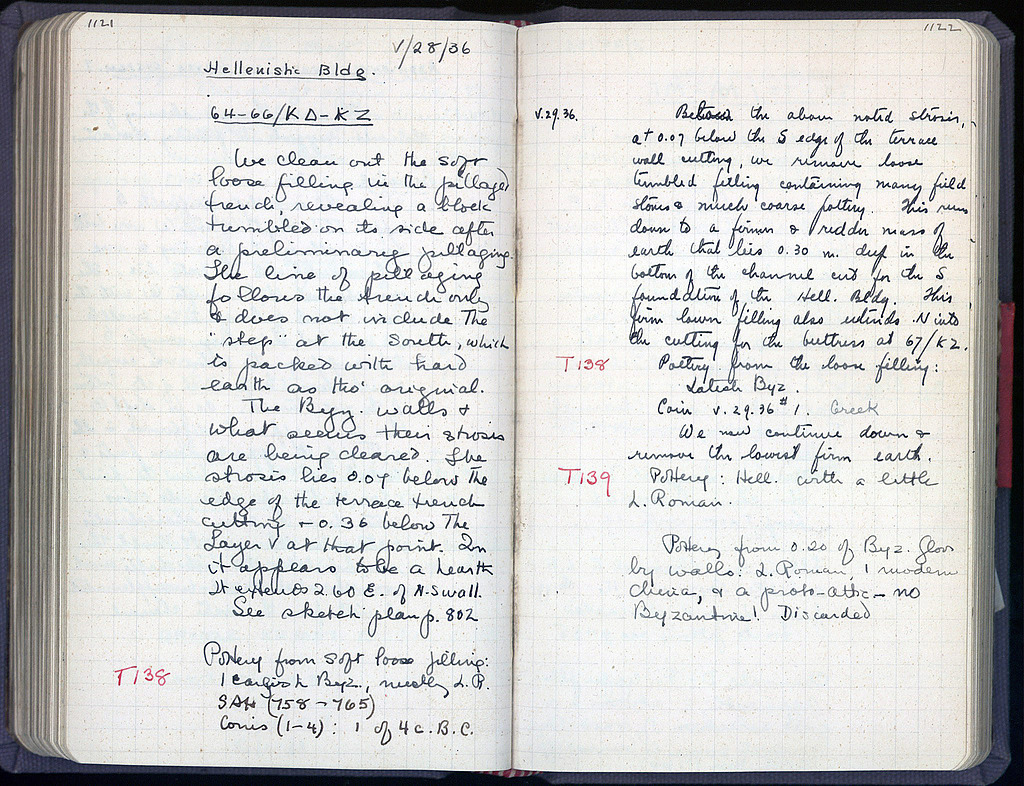 1121
V/28/36
Hellenistic Bldg.
64-66/ΚΔ-ΚΖ
We clean out the soft
loose filling in the pillaged
trench, revealing a block
tumbled on its side after
a preliminary pillaging.
The line of pillaging
follows the trench only
& does not include the
"step" at the south, which
is packed with hard
earth as tho' original.
The Byz. walls &
what seems their strosis
are being cleared. The
strosis lies 0.07 below the
edge of the terrace trench
cutting + 0.36 below the
Layer V at that point. In
it appears to be a hearth
It extends 2.60 E. of N-S wall.
See sketch plan p. 802
Pottery from soft loose filling:
T138
1 Byz., mostly L.R.
SAH (758-765)
Coins (1-4): 1 of 4 c. B.C.
1122
V.29.36.
Below the above noted strosis,
at 0.07 below the S edge of the terrace
wall cutting, we remove loose
tumbled filling containing many field
stones & much coarse pottery. This runs
down to a firmer & redder mass of
earth that lies 0.30 m. deep in the
bottom of the channel cut for the S
foundation of the Hell. Bldg. This
firm lower filling also extends N into
the cutting for the buttress at 67/ΚΖ.
T138
Pottery from the loose filling:
Latish Byz.
Coin V.29.36 #1. Greek
We now continue down &
remove the lowest firm earth.
T139
Pottery: Hell. with a little
L. Roman.
Pottery from 0.20 of Byz. floor
by walls: L. Roman, 1 modern
china, & a proto-attic - no
Byzantine! Discarded